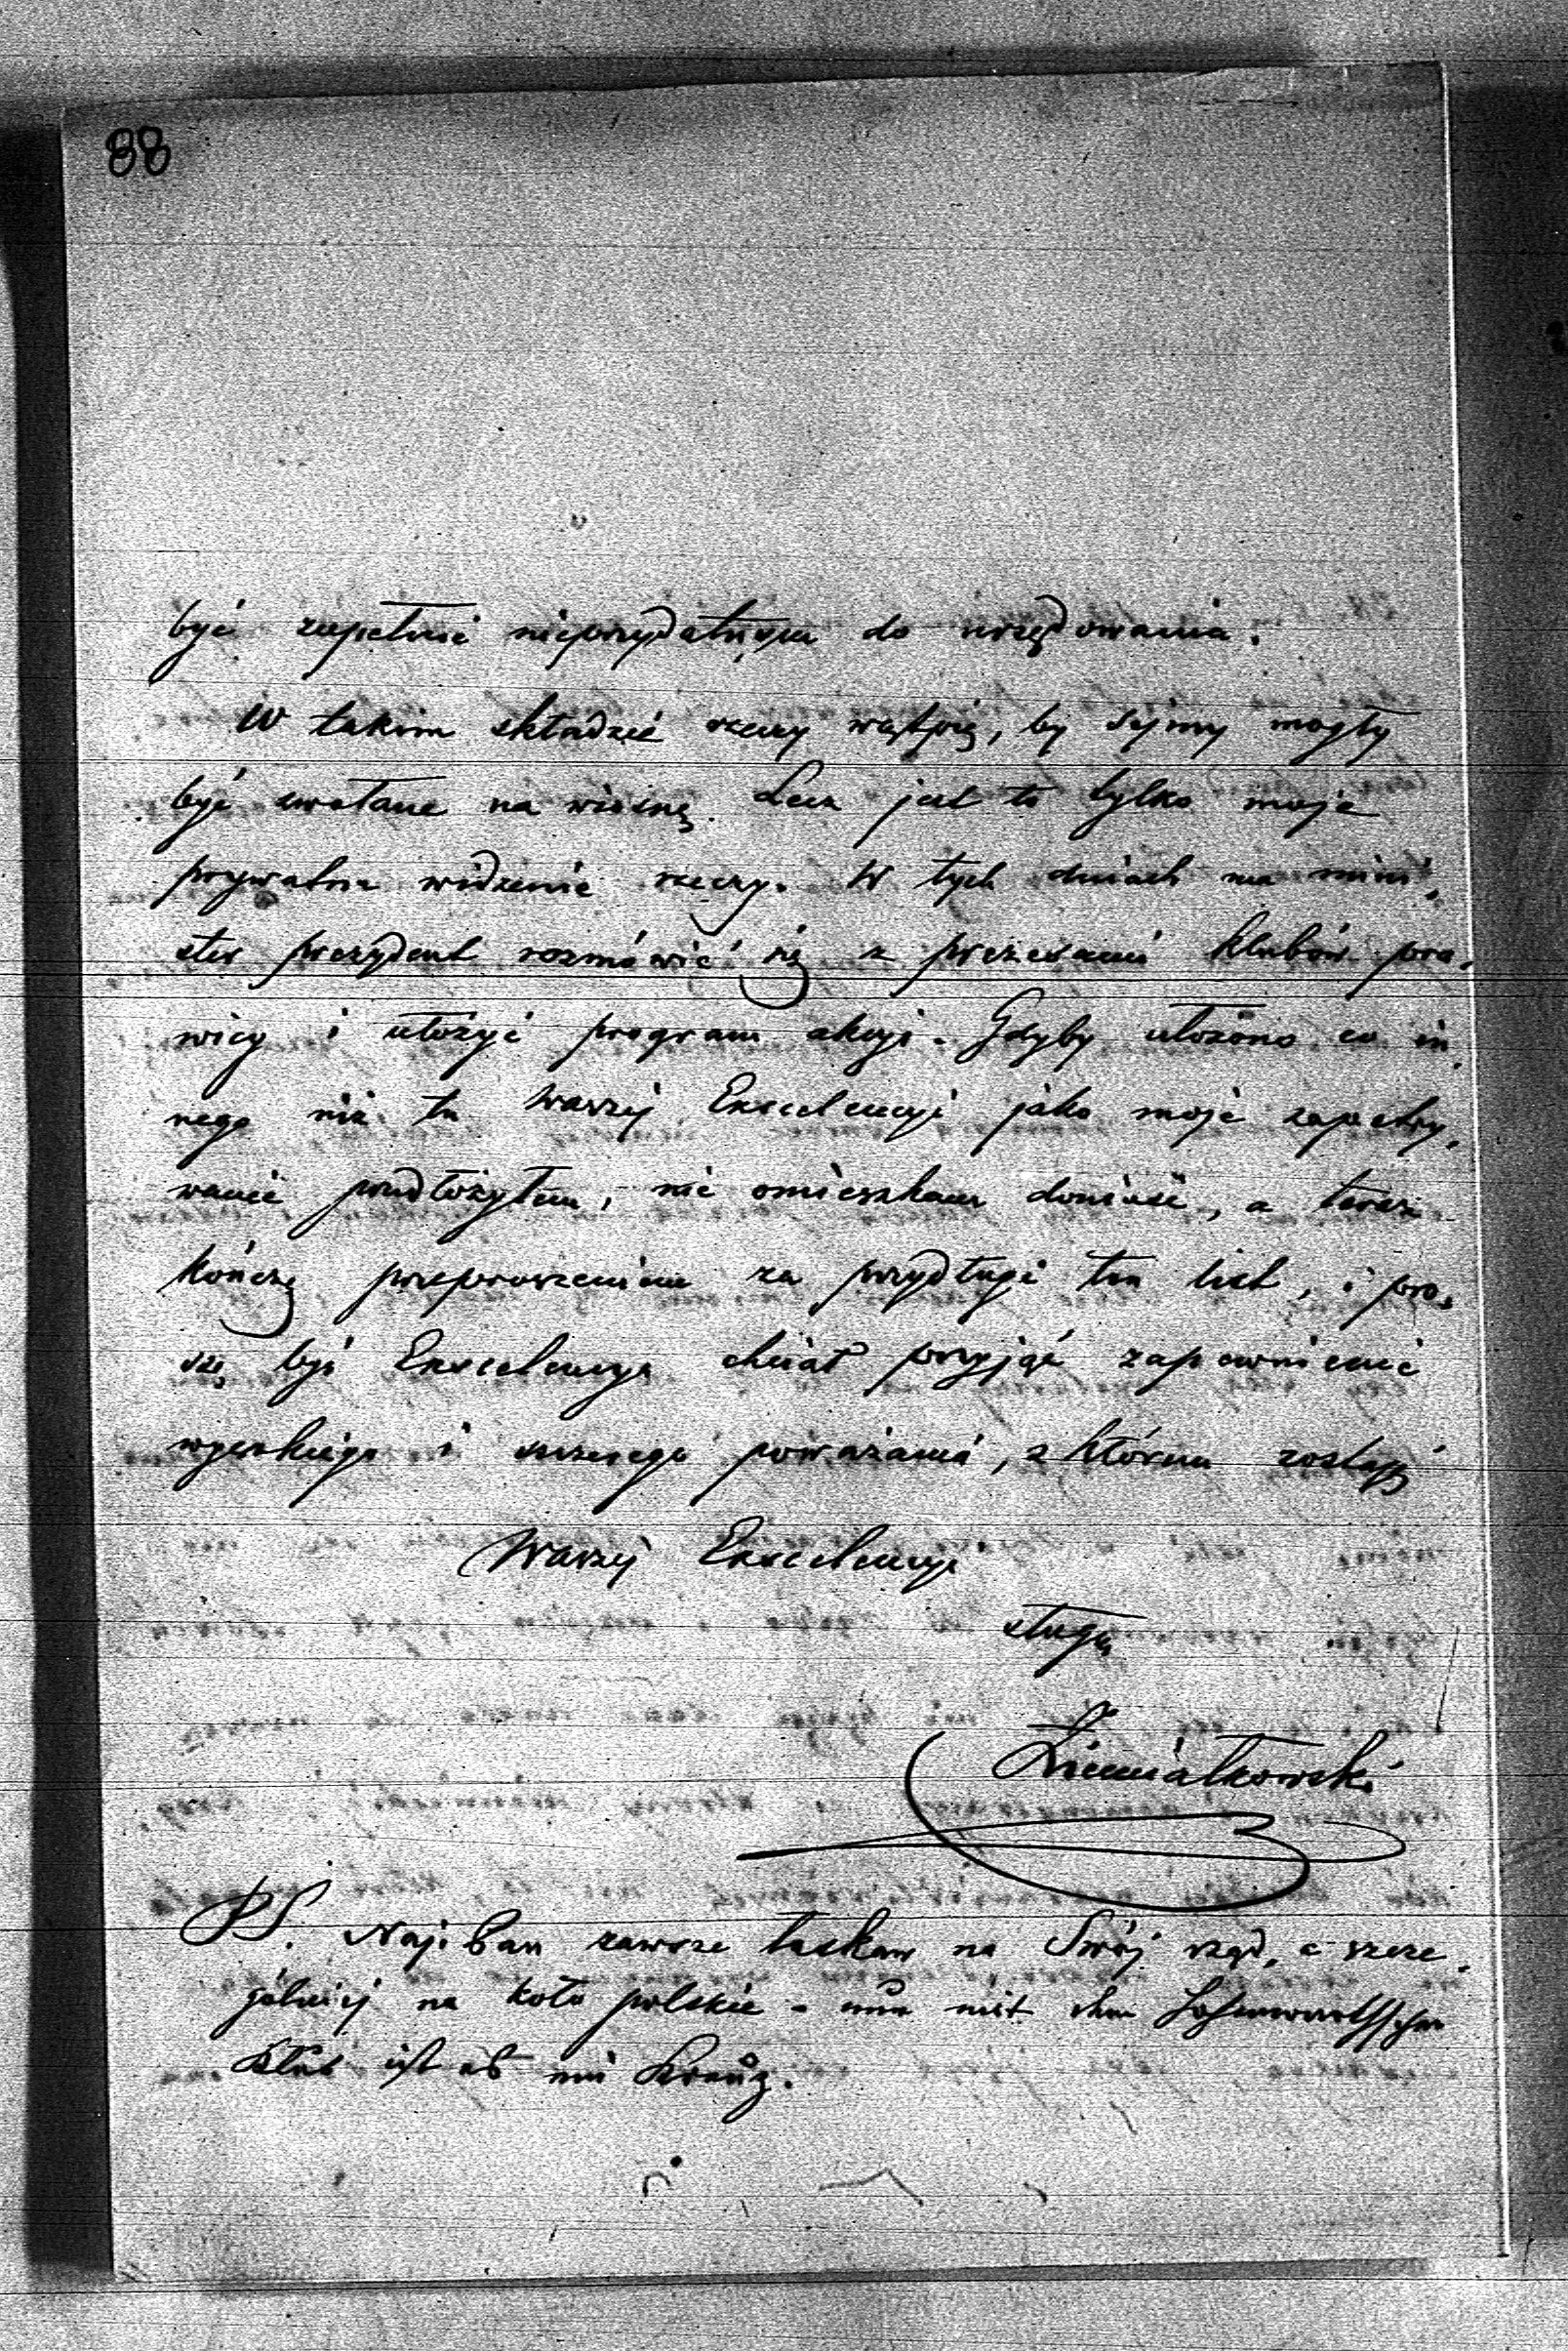 88
być zupełnie nieprzydatnym do urzędowania.
W takim składzie rzeczy wątpię, by sejmy mogły
być zwołane na wiosnę. Lecz jest to tylko moje
prywatne widzenie rzeczy. W tych dniach ma mini„
ster prezydent rozmówić się z prezesami klubów pra„
wicy i ułożyć program akcyi. Gdyby ułożono co in„
nego niż tu Waszej Excelencyi jako moje zapatry„
wanie przedłożyłem, nie omieszkam donieść, a teraz
kończę przeproszeniem za przydługi ten list, i pro„
szę, byś Excelencya chciał przyjąć zapewnienie
wysokiego i szczerego poważania, z którem zostaję
Waszej Excelencyi
sługą
Ziemiałkowski
PS. Najj. Pan zawsze łaskaw na Swój rząd, a szcze„
gólniej na koło polskie - nur mit dem Hohenwartschen
Klub ist es ein Kreuz.